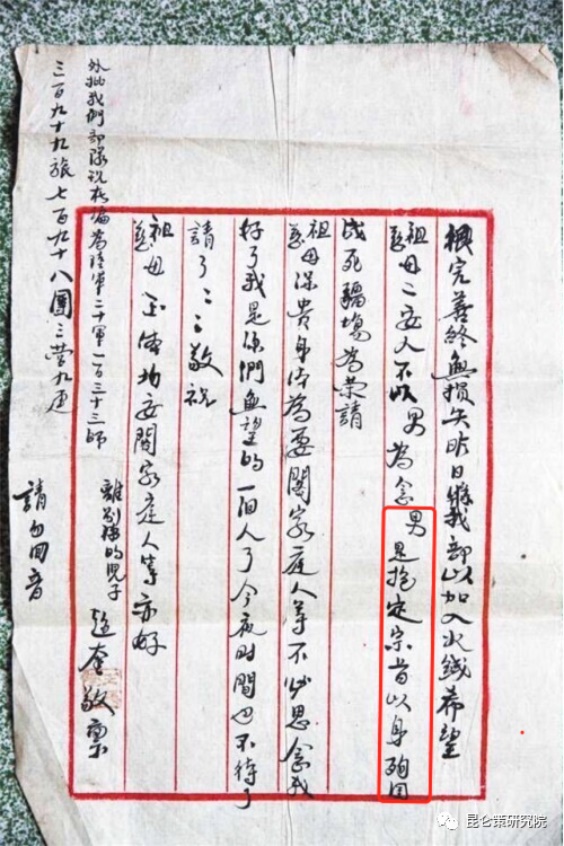 完善終無損失昨日我部以加入火线希望
祖慈母二安人不以男為念男是抱定宗旨以身殉国
战死疆場為荣請
祖慈母保貴身体為要閤家庭人等不必思念我
好了我是你們無望的一個人了今夜时間也不待了
請了二二敬祝
祖慈母玉体均安閤家庭人等亦好
離別的兒子 奎敬禀
外批我們部隊現編為陸軍二十軍一百三十三師
三百九十九旅七百九十八團三营九連
請勿回音
昆仑策研究院